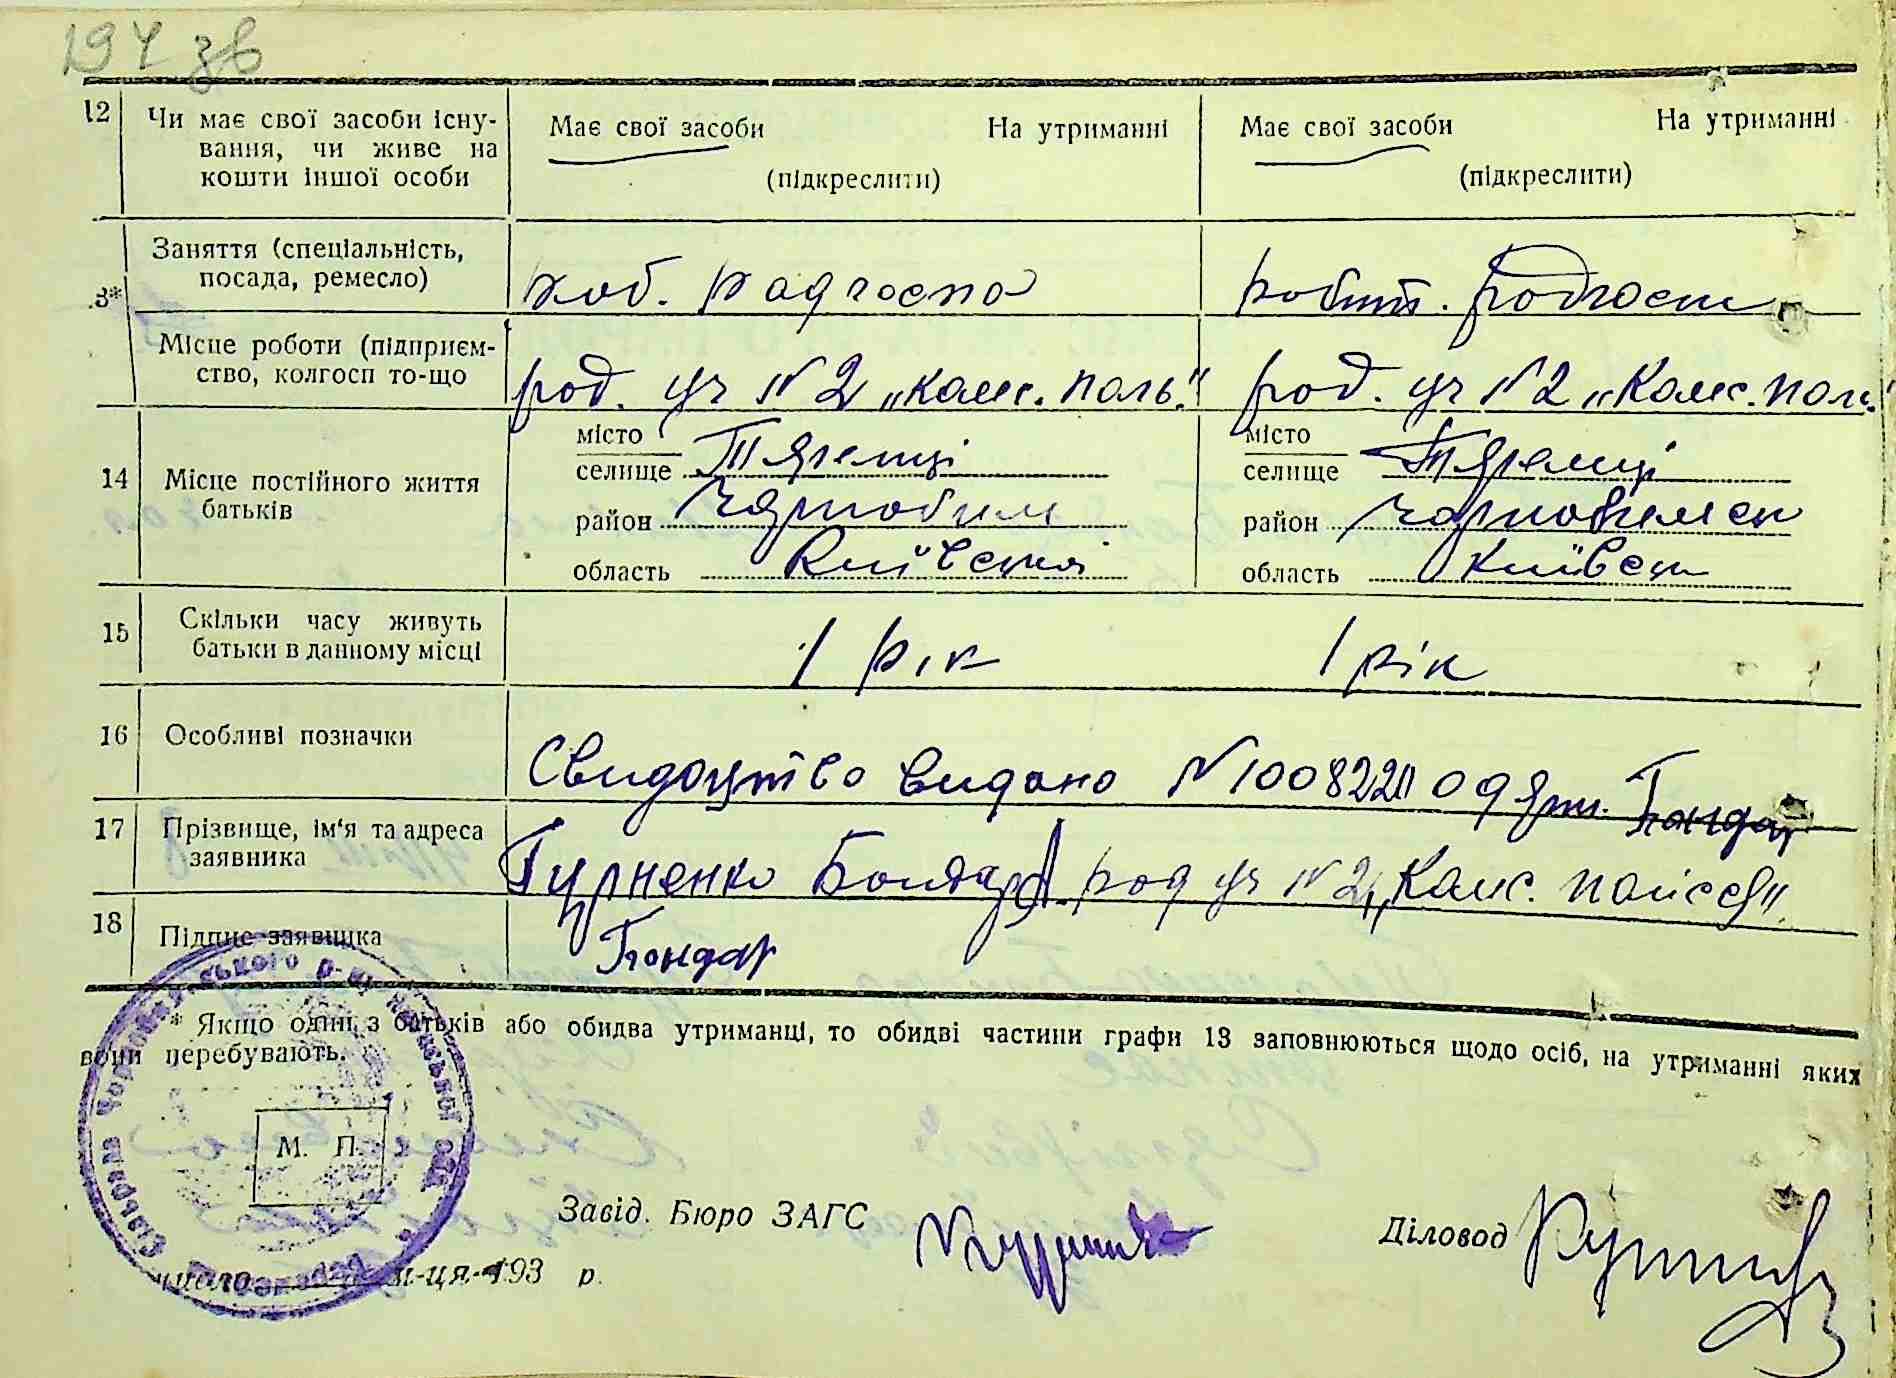 194 зв
12 Чи має свої засоби існу-
вання, чи живе на
кошти іншої особи
Має свої засоби На утриманні
(підкреслити)
Має свої засоби На утриманні
(підкреслити)
Заняття (спеціальність,
посада, ремесло)
роб. радгоспа
робіт. радгосп
3*
Місце роботи (підприєм-
ство, колгосп то-що
рад. уч №2 „Комс. поль."
рад. уч №2 „Комс. поль."
14 Місце постійного життя
батьків
місто
селище
район Чорнобил
область Київська
місто
селище
район Чорнобильск
область Київськ
15 Скільки часу живуть
батьки в данному місці
1 рік
1 рік
16 Особливі позначки
Свидоцтво видано №
17 Прізвище, ім'я та адреса
заявника
рад уч №2 „Комс.
Бондар
18 Підпис заявника
Бондар
* Якщо один з батьків або обидва утриманці, то обидві частини графи 13 заповнюються щодо осіб, на утриманні яких
вони перебувають.
М. П.
Завід. Бюро ЗАГС
Діловод
числа м-ця 193 р.